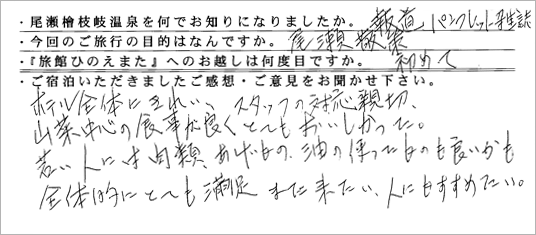 ・尾瀬檜枝岐温泉を何でお知りになりましたか。 報道 パンフレット 雑誌
・今回のご旅行の目的はなんですか。 尾瀬散策
・『旅館ひのえまた』へのお越しは何度目ですか。 初めて
・ご宿泊いただきましたご感想・ご意見をお聞かせ下さい。
ホテル全体にきれい、スタッフの対応親切、
山菜中心の食事が良くとてもおいしかった。
若い人には肉類、あげもの、油の使ったものも良いかも
全体的にとても満足 また来たい、人にもすすめたい。